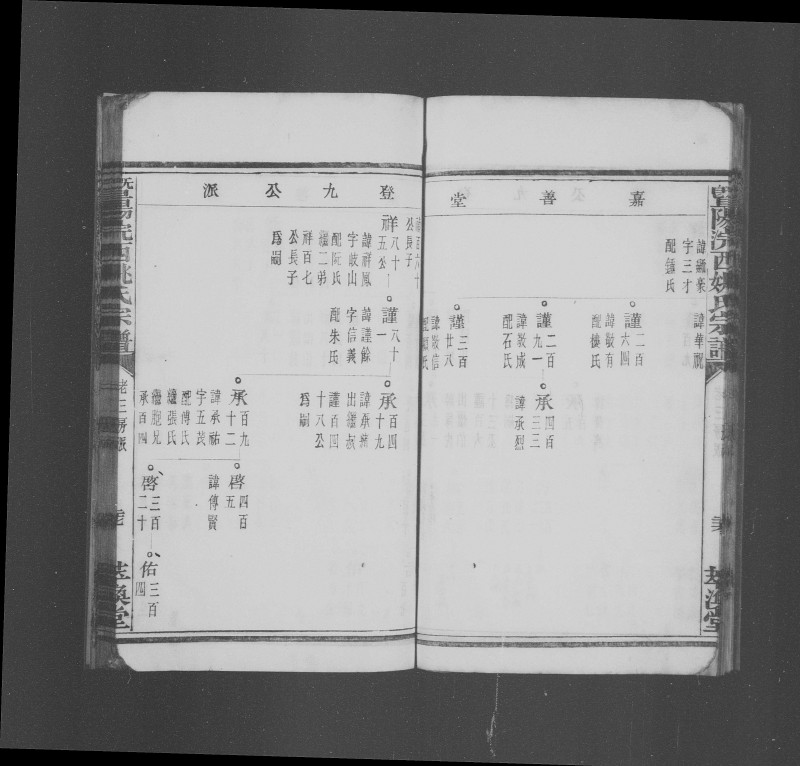 暨陽浣西姚氏宗譜
萃渙堂
嘉善堂
諱繼業
字三才
配鍾氏
諱華祝
謹二百
六四
諱敬有
配樓氏
謹二百
九一
諱敬成
配石氏
承四百
三三
諱承烈
謹三百
廿八
諱敬信
氏
登九公派
公長子
祥八十
五公
諱祥鳳
字岐山
配阮氏
繼二弟
祥百七
公長子
爲嗣
謹八十
一
諱謹餘
字信義
配朱氏
承百四
十九
出繼叔
謹百四
十八公
爲嗣
承百九
十二
諱承祐
字五茂
配傅氏
繼張氏
繼胞兄
承百四
啓四百
五
諱傳賢
啓三百
二十
佑三百
四
暨陽浣西姚氏宗譜
老二房派
萃渙堂